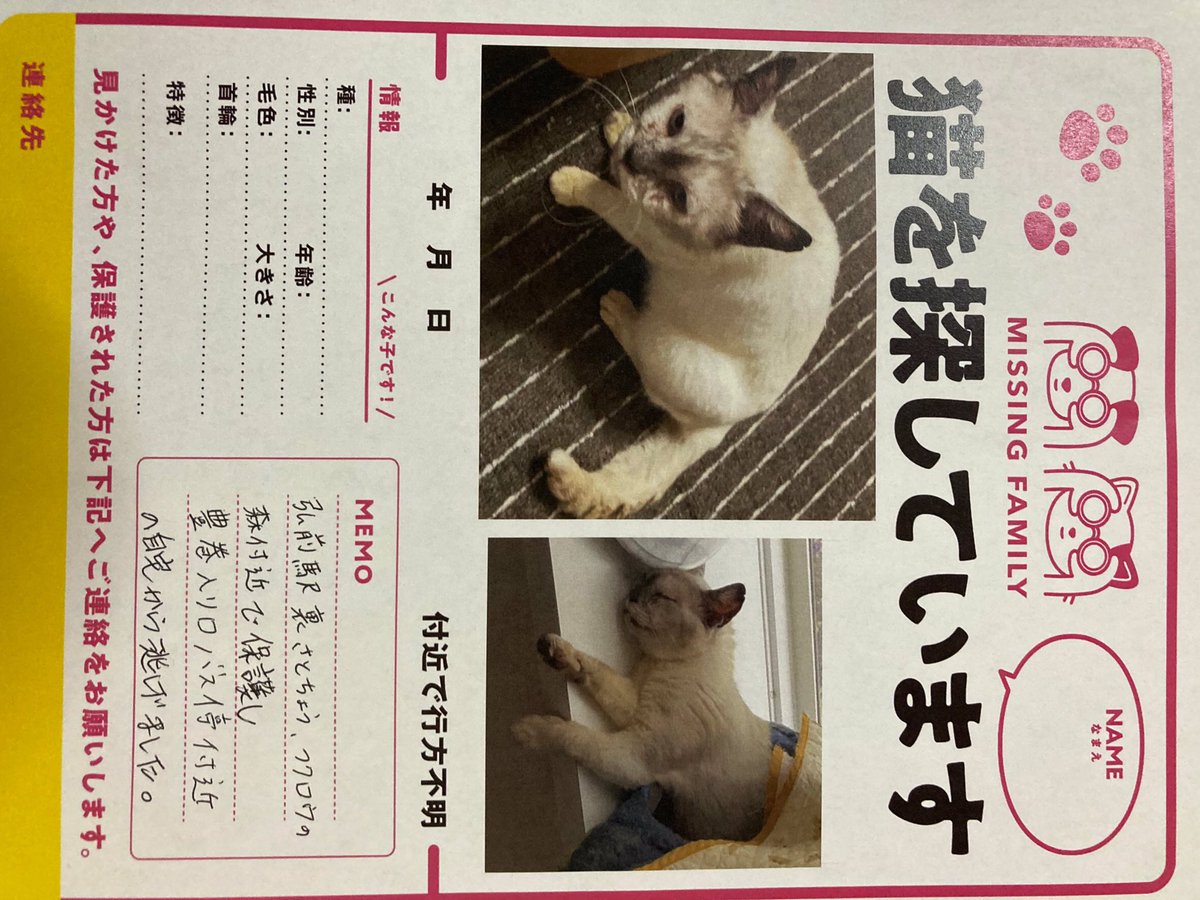 MISSING FAMILY
NAME
なまえ
猫を探しています
年 月 日 付近で行方不明
情報 \こんな子です!/
種:
性別: 年齢:
毛色: 大きさ:
首輪:
特徴:
MEMO
弘前駅裏さとちょう、フクロウの
森付近で保護し
豊巻入り口バス停付近
の自宅から逃げました。
見かけた方や、保護された方は下記へご連絡をお願いします。
連絡先